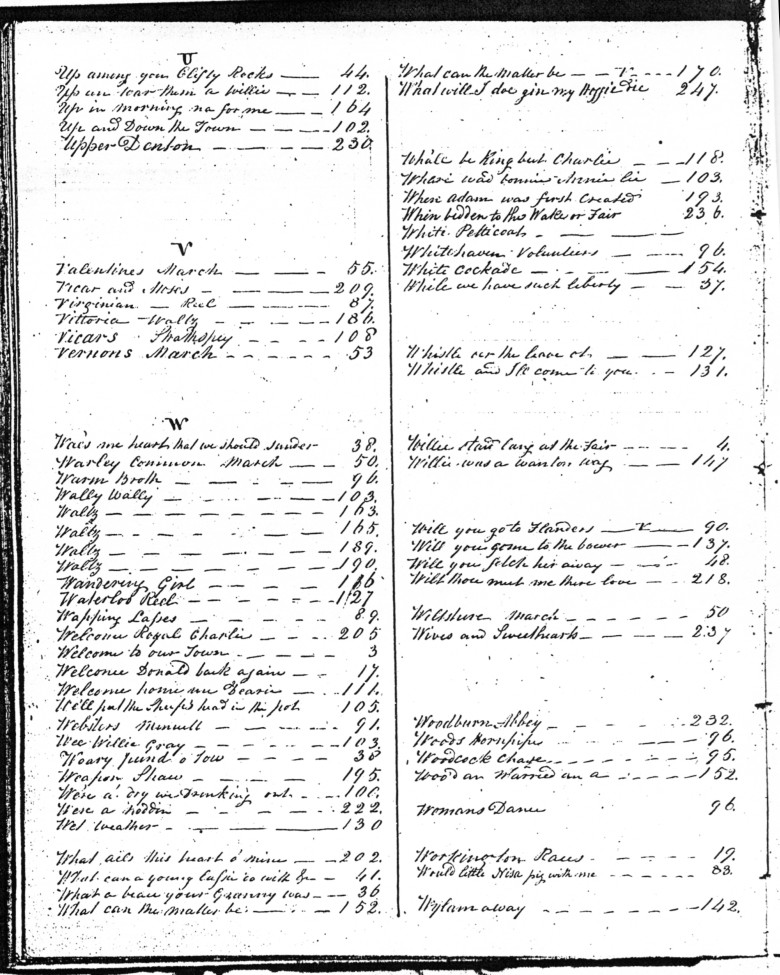 U
Up among yon Clifty Rocks — 44.
Up an waar them a Willie — 112.
Up in morning na for me — 164
Up and Down the Town — 102.
Upper Denton — 230
V
Valentines March — 55.
Vicar and Moses — 209.
Virginian — Reel — 87.
Vittoria Waltz — 186.
Vicars Strathspey — 108
Vernons March — 53
W
Wae's me heart that we should sunder 38.
Warley Common March — 50.
Warm Broth — 96.
Wally Wally — 103.
Waltz — 163.
Waltz — 165.
Waltz — 189.
Waltz — 190.
Wandering Girl — 186
Waterloo Reel — 127
Wapping Lasses — 89.
Welcome Royal Charlie — 205
Welcome to our Town — 3
Welcome Donald back again — 17.
Welcome home me Dearie — 111.
We'll put the Sheep's head in the pot 105.
Websters Minuett — 91.
Wee Willie Gray — 103.
Weary pund o Tow — 38
Weapon Shaw — 195.
We're a' dry wi Drinking ont — 100.
We're a' noddin — 222.
Wet weather — 130
What ails this heart o' mine — 202.
What can a young Lassie do with &c — 41.
What a beau your Granny was — 36
What can the matter be — 152.
What can the matter be — V — 170.
What will I do e gin my Hoggie Die 247.
Wha'le be King but Charlie — 118.
Whare wad bonnie Annie lie — 103.
When Adam was first Created 193.
When bidden to this Wake or Fair 236.
White Petticoat —
Whitehaven Volunteers — 96.
White Cockade — 154.
While we have such liberty — 37.
Whistle oer the leave ot. — 127.
Whistle and I'le come to you — 131.
Willie stad lang at the Fair — 4.
Willie was a wanton wag — 147
Will you go to Flanders — V — 90.
Will you gome to the bower — 137.
Will you fetch her away — 48.
Wilt thou meet me there love — 218.
Wiltshire March — 50
Wives and Sweethearts — 237
Woodburn Abbey — 232.
Woods Hornpipe — 96.
Woodcock Chase — 95.
Woo'd an Married an a — 152.
Womans Dance 96.
Workington Races — 19.
Would little Nisa pig with me — 83.
Wylam away — 142.